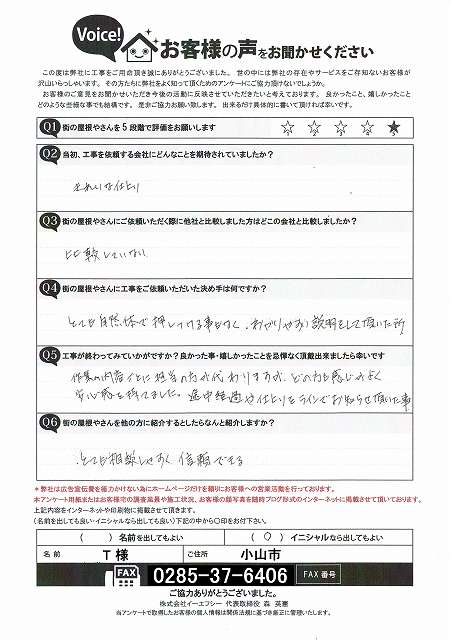 Voice!
お客様の声をお聞かせください
この度は弊社に工事をご用命頂き誠にありがとうございました。世の中には弊社の存在やサービスをご存知ないお客様が
沢山いらっしゃいます。その方たちに弊社をよく知って頂くためのアンケートにご協力頂けないでしょうか。
お客様のご意見をお聞かせいただき今後の活動に反映させていただきたいと考えております。良かったこと、嬉しかったこと
どのような些細な事でも結構です。是非ご協力お願い致します。出来るだけ具体的に書いて頂ければ幸いです。
Q1 街の屋根やさんを5段階で評価をお願いします
☆1 ☆2 ☆3 ☆4 ★5
Q2 当初、工事を依頼する会社にどんなことを期待されていましたか？
きれいな仕上り
Q3 街の屋根やさんにご依頼いただく際に他社と比較しました方はどこの会社と比較しましたか？
比較していない
Q4 街の屋根やさんに工事をご依頼いただいた決め手は何ですか？
とても自然体で押しつける事もなく、わかりやすい説明をして頂いた所
Q5 工事が終わってみていかがですか？良かった事・嬉しかったことを忌憚なく頂戴出来ましたら幸いです
作業の内容ごとに担当の方が代わりますが、どの方も感じがよく
安心感を持てました。途中経過や仕上りをラインでお知らせ頂いた事
Q6 街の屋根やさんを他の方に紹介するとしたらなんと紹介しますか？
とても相談しやすく信頼できる
＊弊社は広告宣伝費を極力かけない為にホームページだけを頼りにお客様への営業活動を行っております。
本アンケート用紙またはお客様宅の調査風景や施工状況、お客様の顔写真を随時ブログ形式のインターネットに掲載させて頂いております。
上記内容をインターネットや印刷物に掲載させて頂きます。
(名前を出しても良い・イニシャルなら出しても良い)下記の中から〇印をお付下さい。
（　）名前を出してもよい
（〇）イニシャルなら出してもよい
名前 T様 ご住所 小山市
FAX 0285-37-6406 FAX番号
ご協力ありがとうございました。
株式会社イーエフシー 代表取締役 森 英憲
当アンケートで取得したお客様の個人情報は関係法規に基づき厳正に管理いたします。